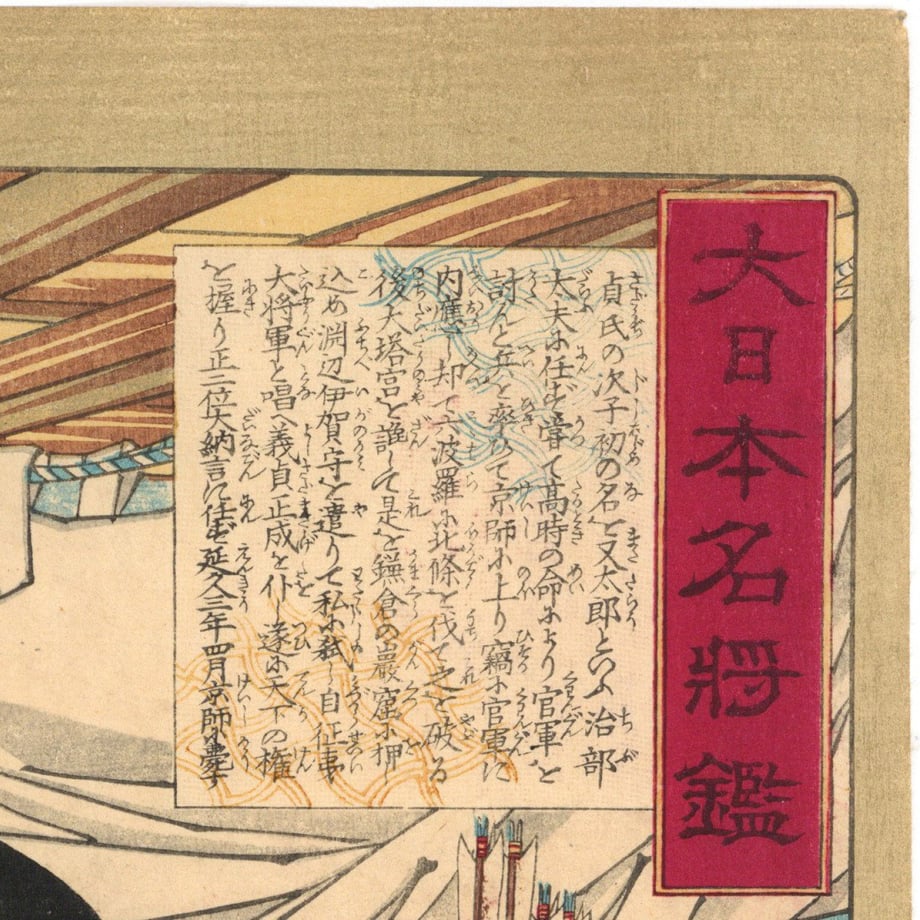 大日本名將鑑
貞氏の次子初の名を又太郎といふ治部
大夫に任ず嘗て高時の命により官軍を
討んと兵を率めて京師に上り竊に官軍に
内應し却て六波羅に北條を伐て之を破る
後大塔宮を譖して是を鎌倉の巖窟に押
込め淵辺伊賀守を遣りて私に弑し自征夷
大将軍と唱義貞正成を仆し遂に天下の権
を握り正二位大納言に任ず延文三年四月京師に薨す